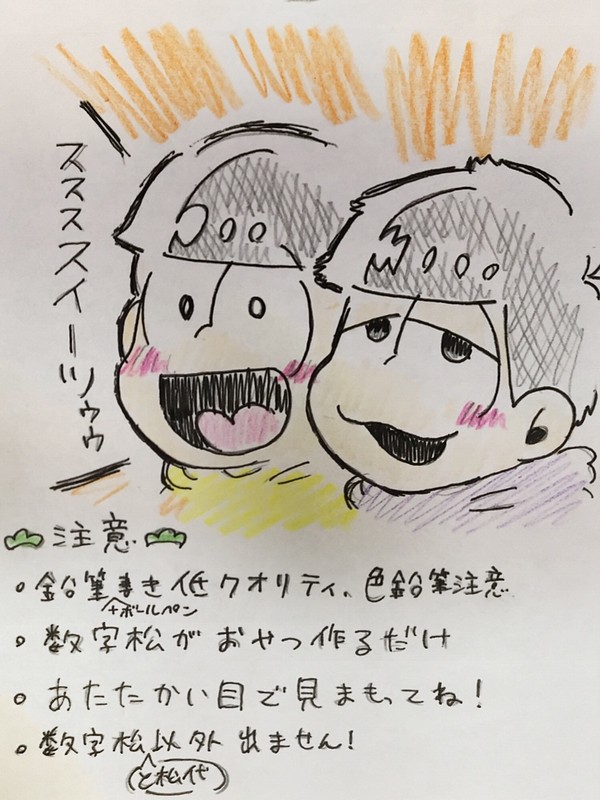 ススススイーツゥゥ
注意
・鉛筆書き低クオリティ、色鉛筆注意
+ボールペン
・数字松がおやつ作るだけ
・あたたかい目で見まもってね!
・数字松以外出ません!
(と松代)